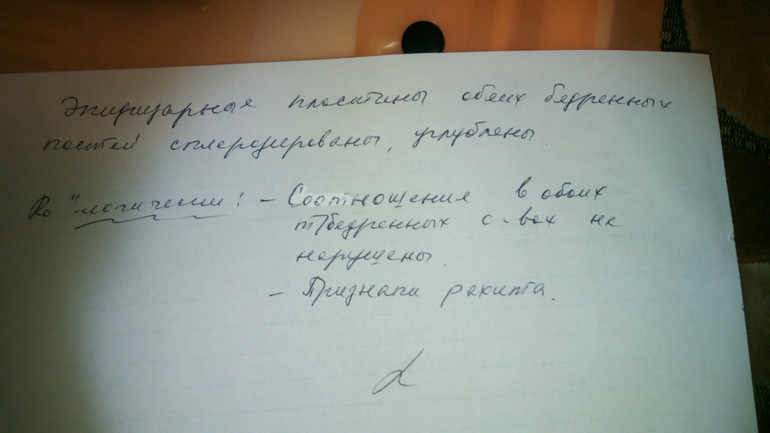 Эпифизарные пластины обеих бедренных
костей склерозированы, углублены
Ro "-логически: - Соотношения в обоих
т/бедренных с-вах не
нарушены.
- Признаки рахита.